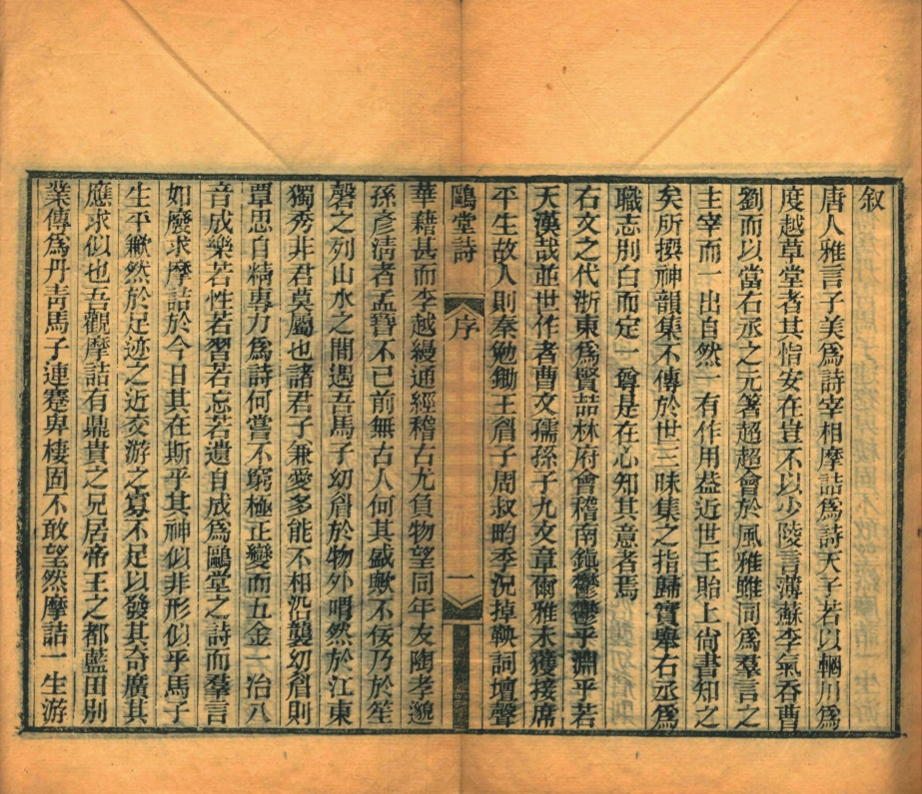 叙
唐人雅言子美爲詩宰相摩詰爲詩天子若以輞川爲
度越草堂者其恉安在豈不以少陵言薄蘇李氣吞曹
劉而以當右丞之元箸超超會於風雅雖同爲羣言之
主宰而一出自然一有作用葢近世王貽上尙書知之
矣所撰神韻集不傳於世三昧集之指歸實舉右丞爲
職志別白而定一尊是在心知其意者焉
右文之代浙東爲賢喆林府會稽南鎭鬱鬱乎淵乎若
天漢哉並世作者曹文孺孫子九文章爾雅未獲接席
平生故人則秦勉鋤王眉子周叔畇季況掉鞅詞壇聲
鷗堂詩 序 一
華藉甚而李越縵通經稽古尤負物望同年友陶孝邈
孫彥淸者孟晉不已前無古人何其盛歟不佞乃於笙
磬之列山水之間遇吾馬子幼眉於物外喟然於江東
獨秀非君莫屬也諸君子兼愛多能不相沿襲幼眉則
覃思自精專力爲詩何嘗不窮極正變而五金一冶八
音成樂若性若習若忘若遺自成爲鷗堂之詩而羣言
如廢求摩詰於今日其在斯乎其神似非形似乎馬子
生平歉然於足迹之近交游之寡不足以發其奇廣其
應求似也吾觀摩詰有鼎貴之兄居帝王之都藍田別
業傳爲丹靑馬子連蹇卑棲固不敢望然摩詰一生游